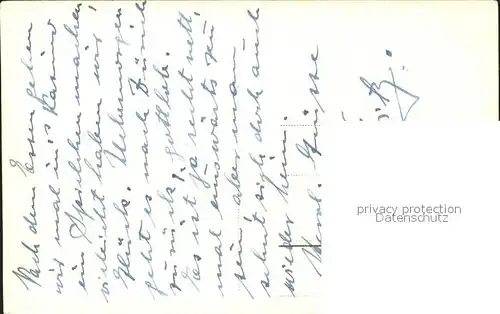 Nach dem Essen gehen
wir mal in's Kasino
ein Spielchen machen
vielleicht haben wir
Glück. Uebermorgen
geht es nach Zürich
zurück, gottlob.
Es ist ja recht nett,
mal auswärts zu
sein, aber man
sehnt sich doch auch
wieder heim.
Herzl. Grüsse
privacy protection
Datenschutz